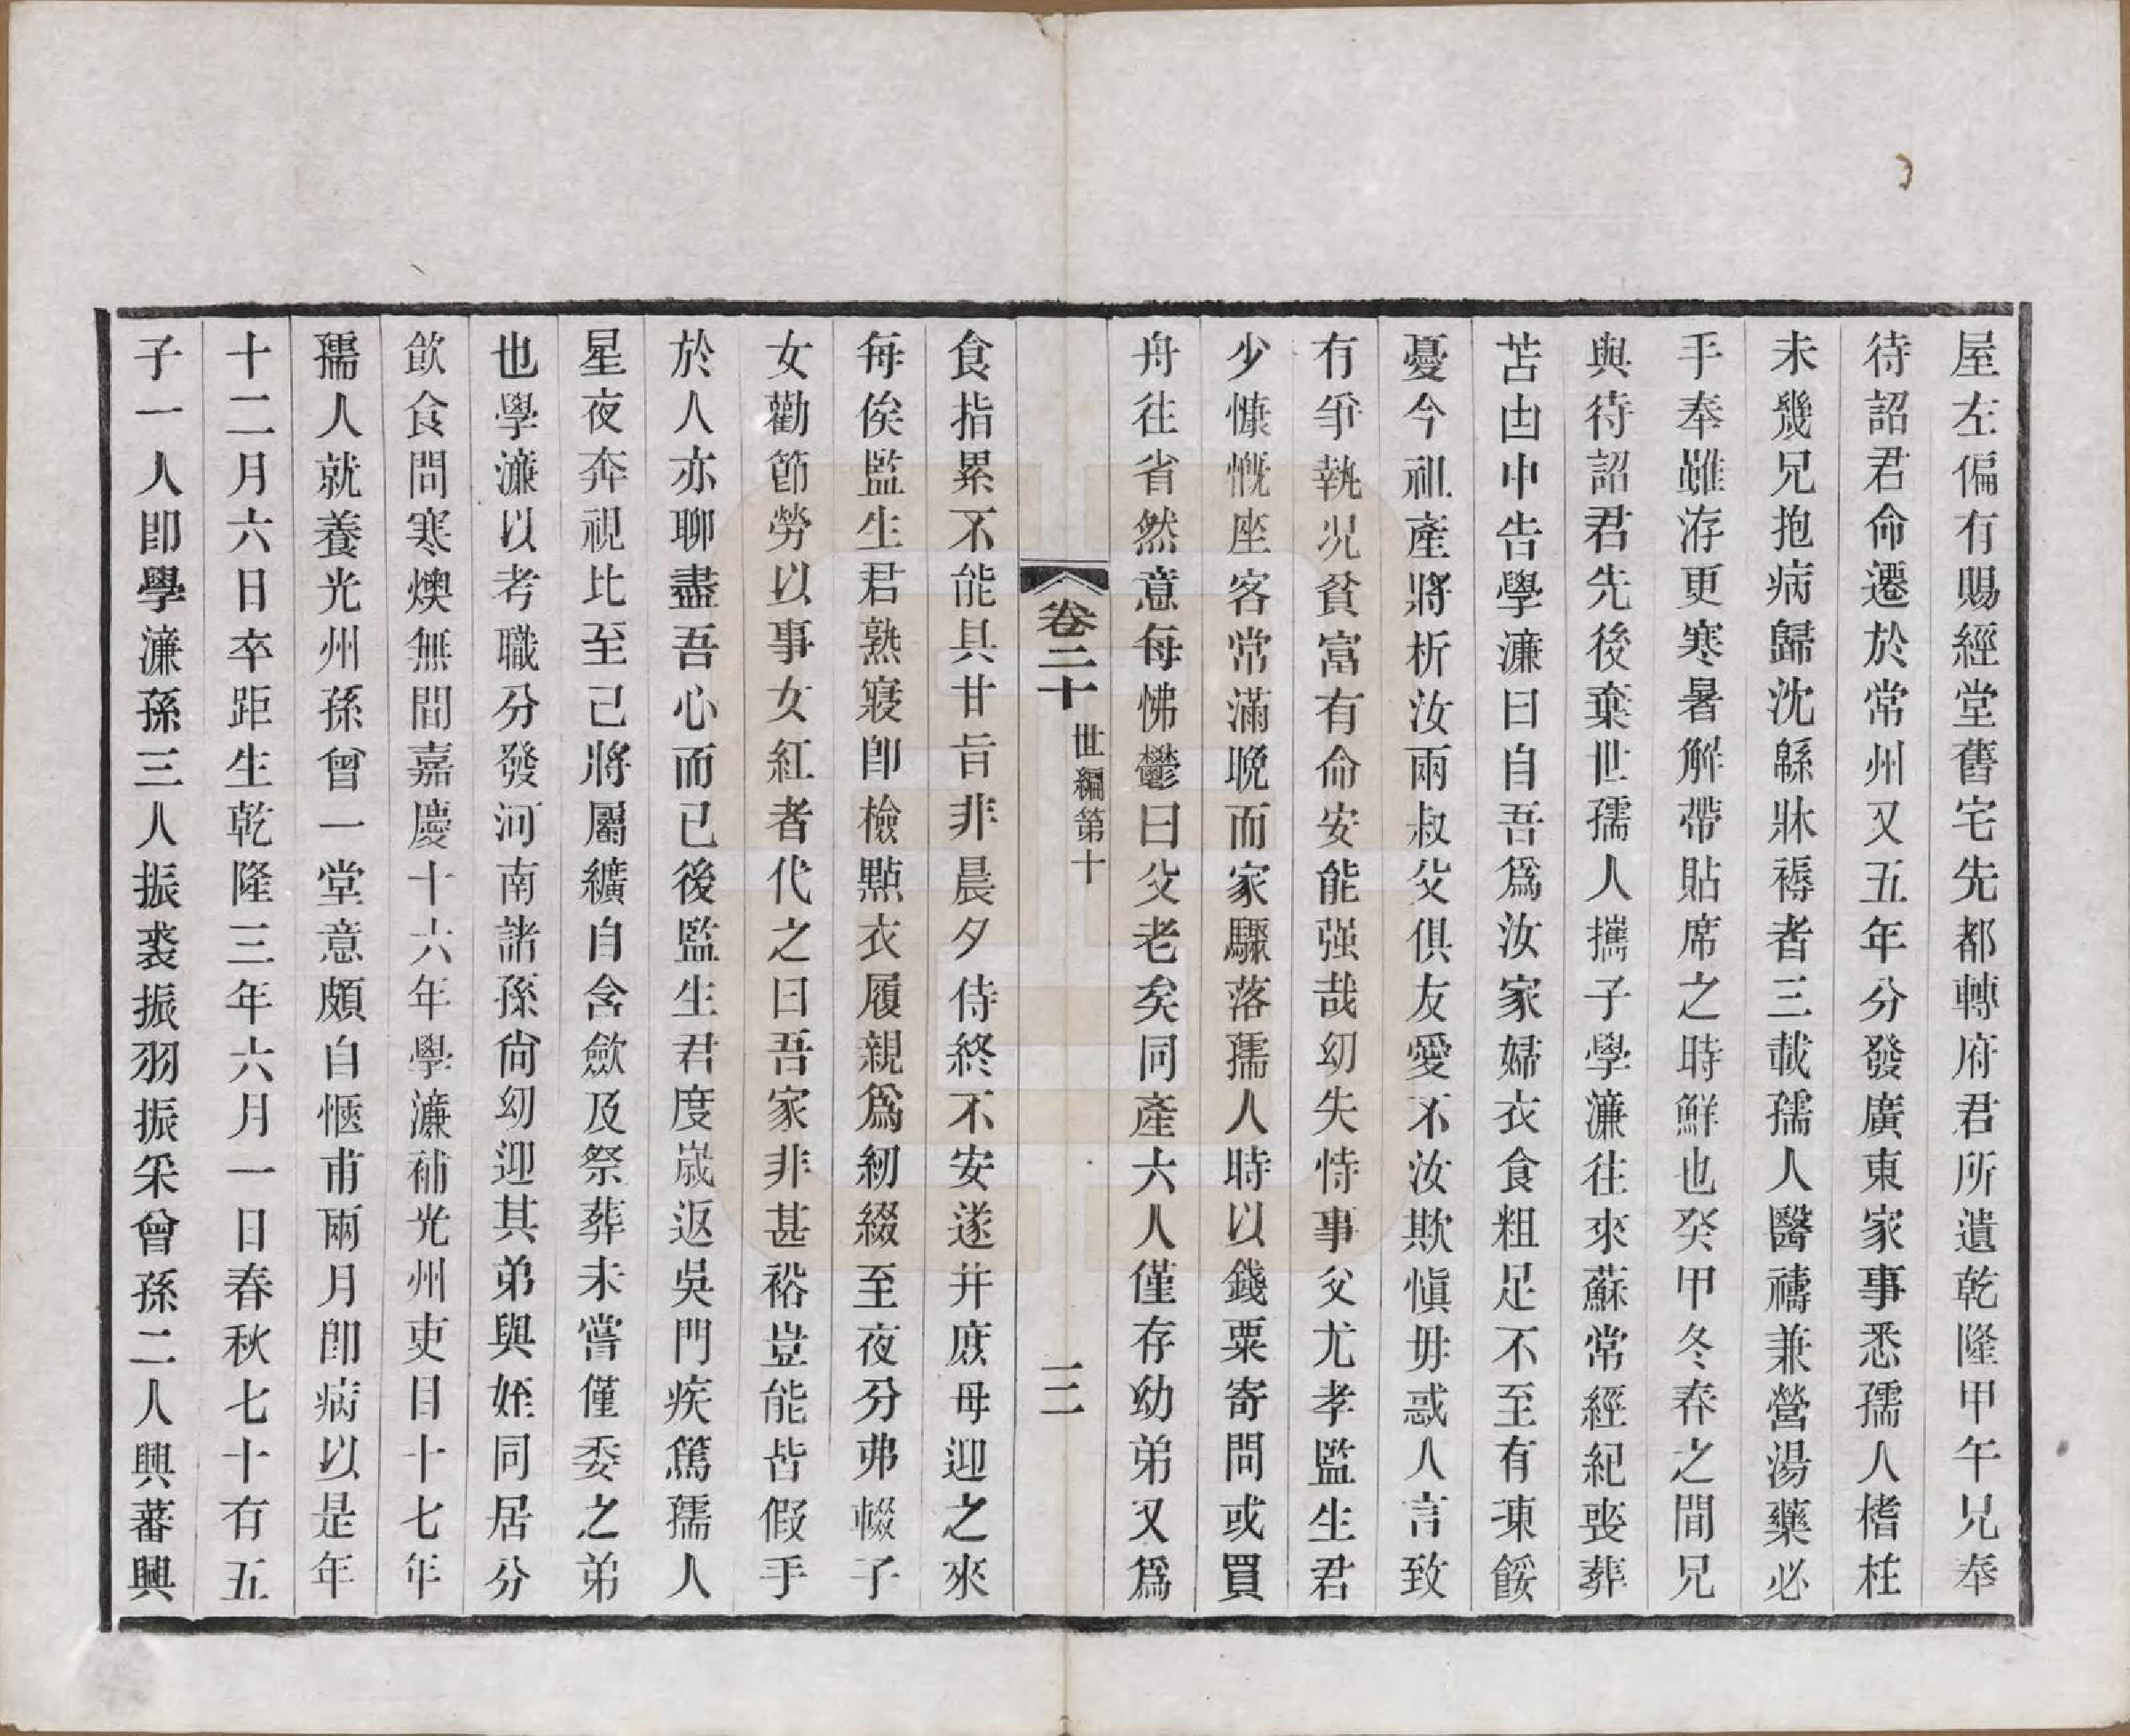 屋左偏有賜經堂舊宅先都轉府君所遺乾隆甲午兄奉
待詔君命遷於常州又五年分發廣東家事悉孺人楮柱
未幾兄抱病歸沈緜牀褥者三載孺人醫禱兼營湯藥必
手奉雖洊更寒暑解帶貼席之時鮮也癸甲冬春之間兄
與待詔君先後棄世孺人攜子學濂往來蘇常經紀喪葬
苫凷中告學濂曰自吾爲汝家婦衣食粗足不至有凍餒
憂今祖產將析汝兩叔父俱友愛不汝欺愼毋惑人言致
有爭執況貧富有命安能强哉幼失恃事父尤孝監生君
少慷慨座客常滿晚而家驟落孺人時以錢粟寄問或買
舟往省然意每怫鬱曰父老矣同產六人僅存幼弟又爲
卷二十 世編第十 三
食指累不能具甘旨非晨夕侍終不安遂并庶母迎之來
每俟監生君熟寢卽檢點衣履親爲紉綴至夜分弗輟子
女勸節勞以事女紅者代之曰吾家非甚裕豈能皆假手
於人亦聊盡吾心而已後監生君度歲返吳門疾篤孺人
星夜奔視比至已將屬纊自含斂及祭葬未嘗僅委之弟
也學濂以考職分發河南諸孫尙幼迎其弟與姪同居分
飲食問寒燠無間嘉慶十六年學濂補光州吏目十七年
孺人就養光州孫曾一堂意頗自愜甫兩月卽病以是年
十二月六日卒距生乾隆三年六月一日春秋七十有五
子一人卽學濂孫三人振裘振羽振采曾孫二人興蕃興